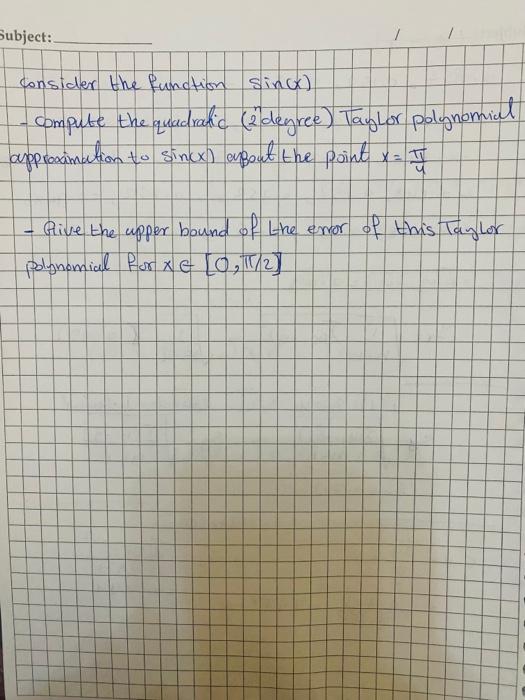 Subject: / /
Consider the function sin(x)
- Compute the quadratic (2nd degree) Taylor polynomial
approximation to sin(x) about the point x = π/4
- Give the upper bound of the error of this Taylor
polynomial for x ∈ [0, π/2]